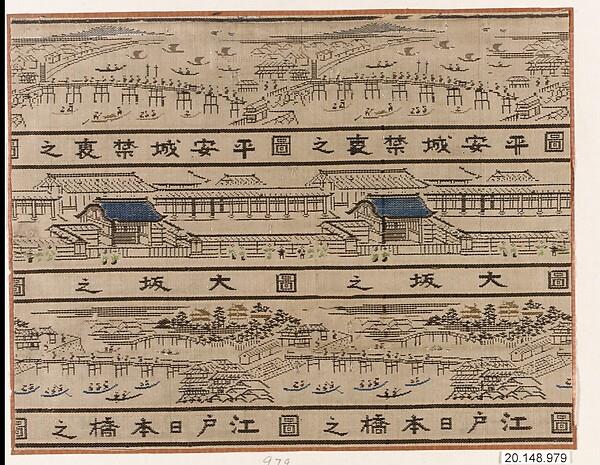 圖平安城禁裏之圖平安城禁裏之圖
圖大坂之圖大坂之圖
圖江戸日本橋之圖江戸日本橋之圖
979
20.148.979